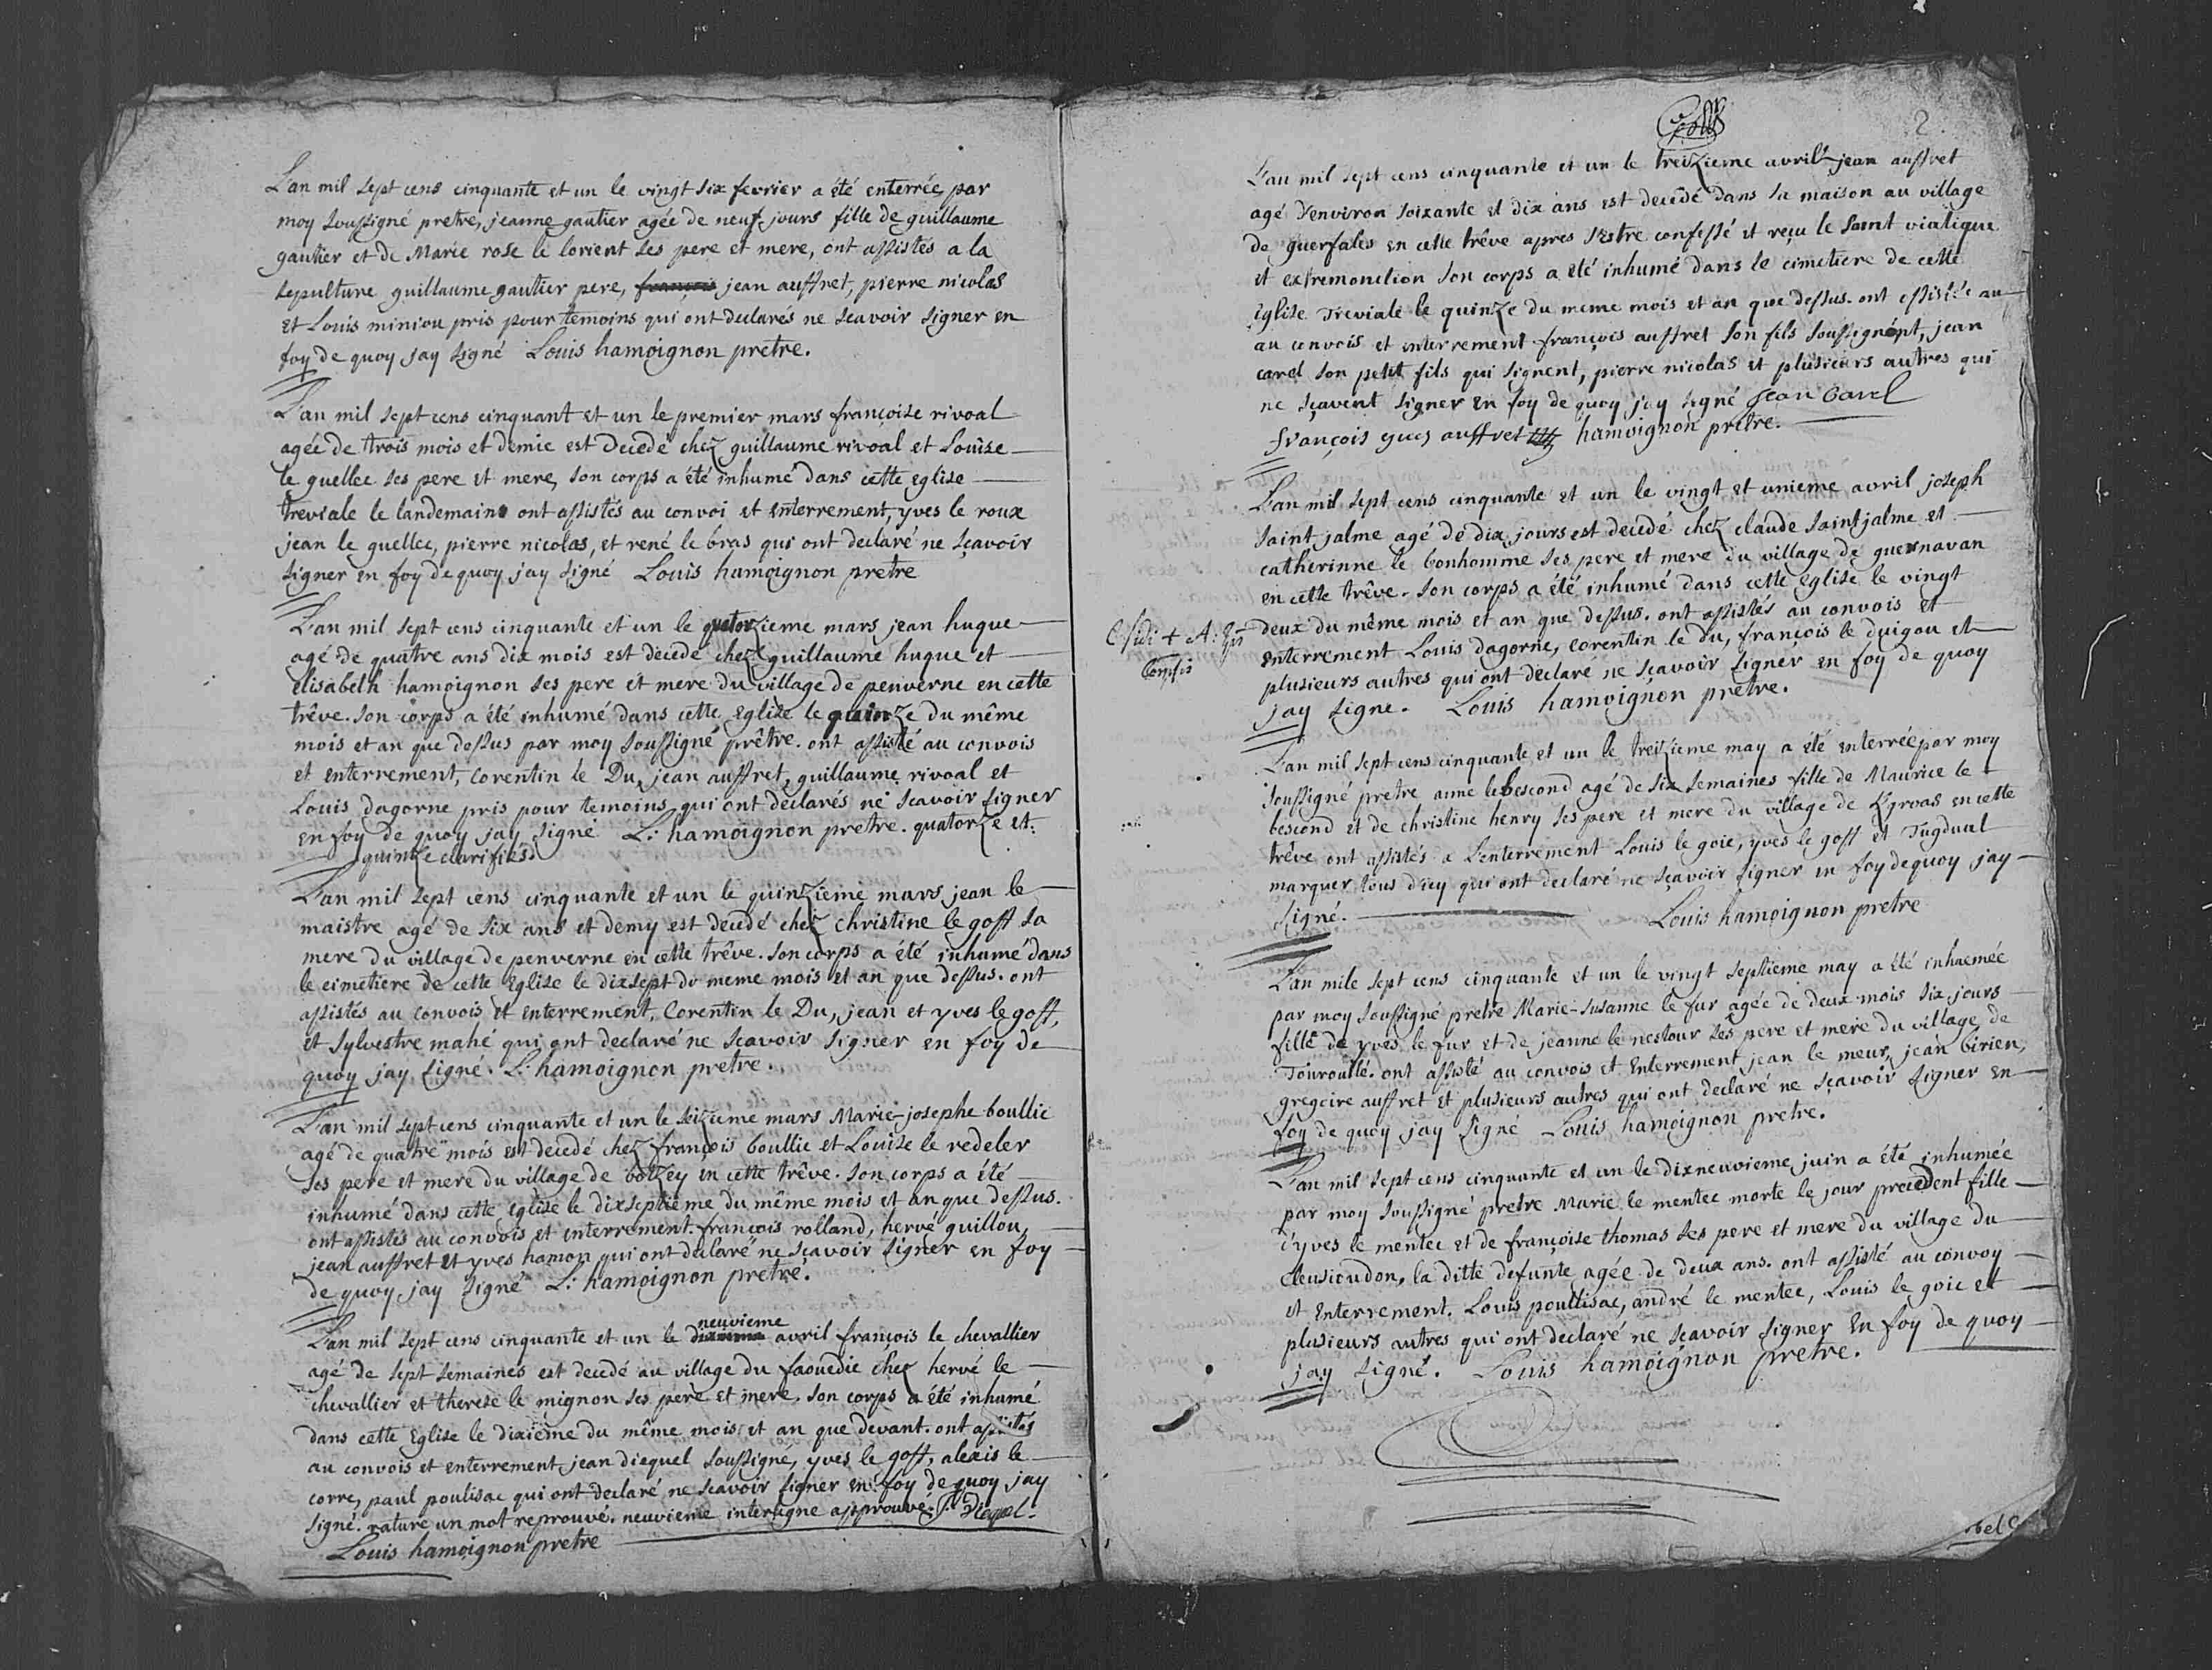 L'an mil sept cens cinquante et un le vingt six fevrier a été enterrée par
moy soussigné pretre, jeanne gautier agée de neuf jours fille de guillaume
gautier et de Marie rose le lorient ses pere et mere, ont assistés a la
sepulture guillaume gautier pere, françois jean auffret, pierre nicolas
et Louis miniou pris pour temoins qui ont declarés ne scavoir signer en
foy de quoy jay signé Louis hamoignon pretre.
L'an mil sept cens cinquant et un le premier mars françoise rivoal
agée de trois mois et demie est decedé chez guillaume rivoal et Louise
le guellec ses pere et mere, son corps a été inhumé dans cette eglise
treviale le landemain ont assistés au convoi et enterrement, yves le roux
jean le guellec, pierre nicolas, et rené le bras qui ont declaré ne sçavoir
signer en foy de quoy jay signé Louis hamoignon pretre
L'an mil sept cens cinquante et un le quatorzieme mars jean huque
agé de quatre ans dix mois est decedé chez guillaume huque et
elisabeth hamoignon ses pere et mere du village de penverne en cette
trêve. son corps a été inhumé dans cette eglise le quinze du même
mois et an que dessus par moy soussigné prêtre. ont assisté au convois
et enterrement, corentin le Du, jean auffret, guillaume rivoal et
Louis dagorne pris pour temoins qui ont declarés ne scavoir signer
en foy de quoy jay signé L: hamoignon pretre. quatorze et
quinze clarifiés
L'an mil sept cens cinquante et un le quinzieme mars jean le
maistre agé de six ans et demy est decedé chez christine le goff sa
mere du village de penverne en cette trêve. son corps a été inhumé dans
le cimetiere de cette eglise le dixsept du meme mois et an que dessus. ont
assistés au convois et enterrement, Corentin le Du, jean et yves le goff,
et sylvestre mahé qui ont declaré ne scavoir signer en foy de
quoy jay signé. L: hamoignon pretre.
L'an mil sept cens cinquante et un le seizieme mars Marie-josephe boullic
agé de quatre mois est decedé chez françois boullic et Louise le redeler
ses pere et mere du village de botzey en cette trêve. son corps a été
inhumé dans cette eglise le dixseptieme du même mois et an que dessus.
ont assistés au convois et enterrement. françois rolland, hervé guillou,
jean auffret et yves hamon qui ont declaré ne scavoir signer en foy
de quoy jay signé L: hamoignon pretre.
neuvieme
L'an mil sept cens cinquante et un le dixieme avril françois le chevallier
agé de sept semaines est decedé au village du faouedic chez hervé le
chevallier et therese le mignon ses pere et mere, son corps a été inhumé
dans cette eglise le dixieme du même mois et an que devant. ont assistés
au convois et enterrement jean diequel soussigné, yves le goff, alexis le
corre, paul poulisac qui ont declaré ne scavoir signer en foy de quoy jay
signé. rature un mot reprouvé. neuvieme interligne approuvé. Diequel.
Louis hamoignon pretre
2
L'an mil sept cens cinquante et un le treizieme avril jean auffret
agé d'environ soixante et dix ans est decedé dans sa maison au village
de guerfales en cette trêve apres s'estre confessé et reçu le saint viatique
et extremonction son corps a été inhumé dans le cimetiere de cette
Eglise Treviale le quinze du meme mois et an que dessus. ont assisté au
au convois et enterrement françois auffret son fils soussignent, jean
carel son petit fils qui signent, pierre nicolas et plusieurs autres qui
ne sçavent signer en foy de quoy jay signé Jean Carel
françois yues auffret hamoignon pretre.
L'an mil sept cens cinquante et un le vingt et unieme avril joseph
saint jalme agé de dix jours est decedé chez claude saint jalme et
catherinne le bonhomme ses pere et mere du village de guernavan
en cette trêve. son corps a été inhumé dans cette eglise le vingt
deux du même mois et an que dessus. ont assistés au convois et
enterrement Louis dagorne, corentin le du, françois le duigou et
plusieurs autres qui ont declaré ne scavoir signer en foy de quoy
jay signe. Louis hamoignon pretre.
L'an mil sept cens cinquante et un le treizieme may a été enterrée par moy
soussigné pretre anne le bescond agé de six semaines fille de Maurice le
bescond et de christine henry ses pere et mere du village de Kgroas en cette
trêve ont assistés a L'enterrement Louis le goic, yves le goff et Tugdual
marquer tous d'icy qui ont declaré ne sçavoir signer en foy de quoy jay
signé. Louis hamoignon pretre
L'an mile sept cens cinquante et un le vingt septieme may a été inhumée
par moy soussigné pretre Marie-susanne le fur agée de deux mois six jours
fille de yves le fur et de jeanne le nestour ses pere et mere du village de
Touroulle. ont assisté au convois et Enterrement jean le meur, jean birien,
gregoire auffret et plusieurs autres qui ont declaré ne sçavoir signer en
foy de quoy jay signé Louis hamoignon pretre.
L'an mil sept cens cinquante et un le dixneuvieme juin a été inhumée
par moy soussigné pretre Marie le mentec morte le jour precedent fille
d'yves le mentec et de françoise thomas ses pere et mere du village du
cleusioudon, la ditte defunte agée de deux ans. ont assisté au convoy
et Enterrement. Louis poullisac, andré le mentec, Louis le goic et
plusieurs autres qui ont declaré ne scavoir signer En foy de quoy
jay signé. Louis hamoignon pretre.